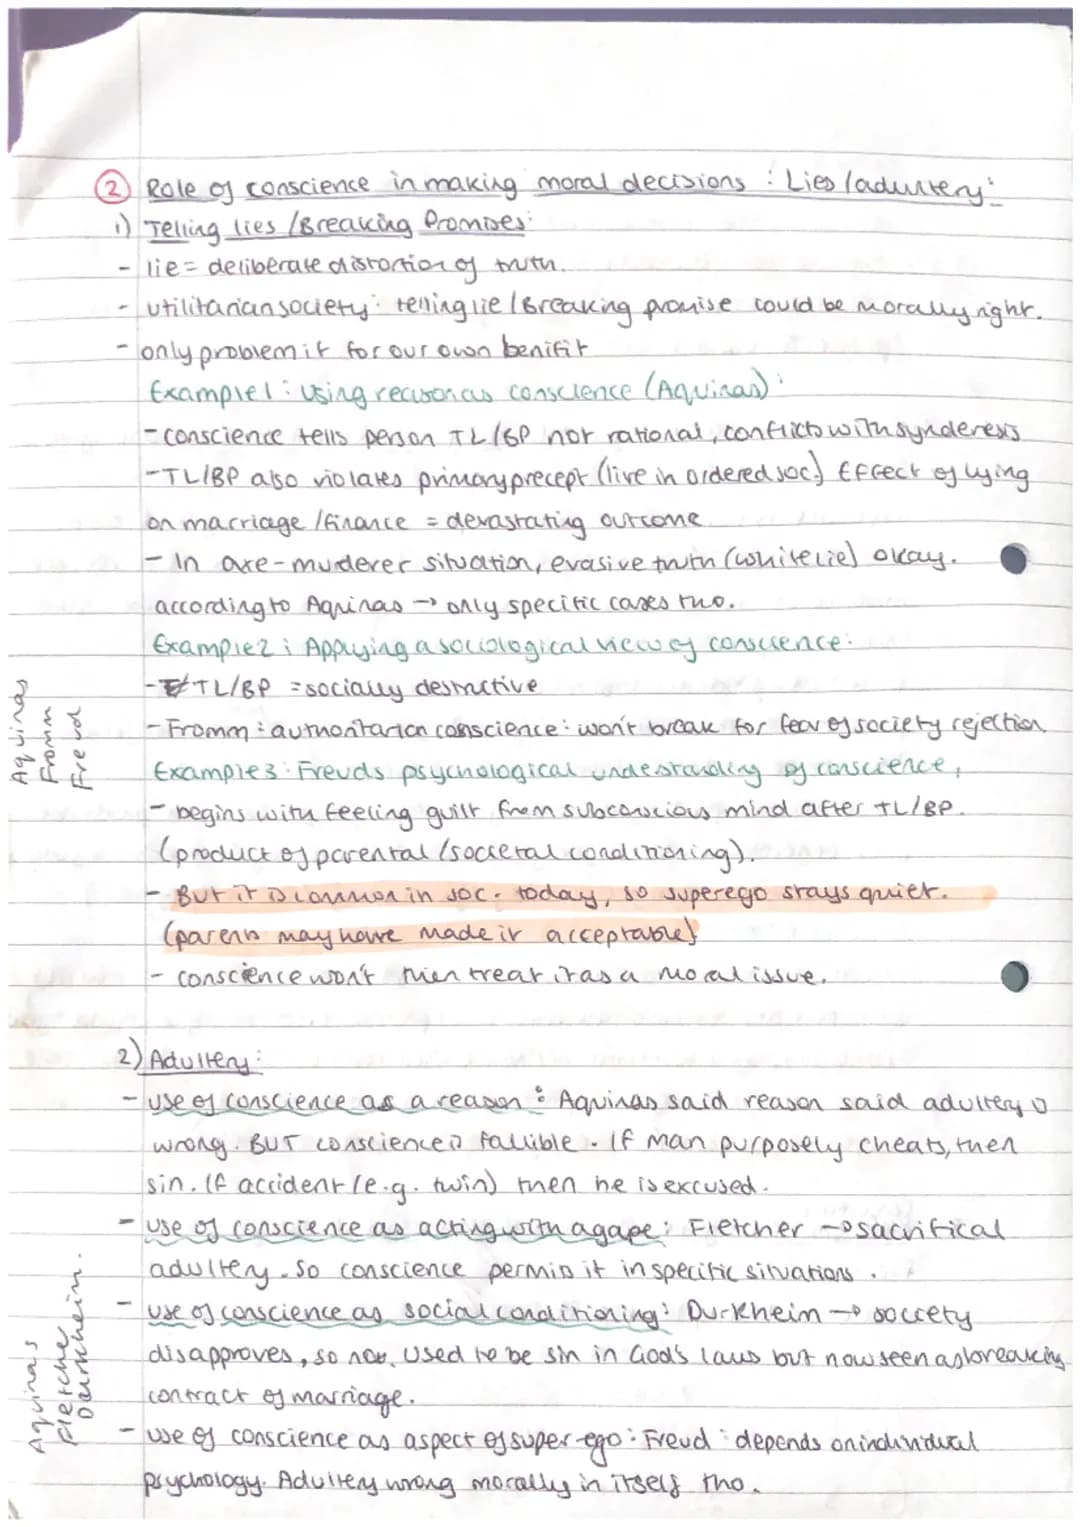 ② Role of conscience in making moral decisions : Lies / adultery :
i) Telling lies / Breaking Promises :
- lie = deliberate distortion of truth.
- utilitarian society : telling lie / Breaking promise could be morally right.
- only problem if for our own benifit
Example 1 : Using reason as conscience (Aquinas) :
- conscience tells person TL/BP not rational, conflicts with synderesis
- TL/BP also violates primary precept (live in ordered soc.) Effect of lying
on marriage / finance = devastating outcome
- In axe-murderer situation, evasive truth (white lie) okay.
according to Aquinas → only specific cases tho.
Example 2 : Applying a sociological view of conscience :
- TL/BP = socially destructive
- Fromm : authoritarian conscience : won't break for fear of society rejection
Example 3 : Freuds psychological understanding of conscience,
- begins with feeling guilt from subconscious mind after TL/BP.
(product of parental / societal conditioning).
- But it is common in soc. today, so superego stays quiet.
(parents may have made it acceptable)
- conscience won't then treat it as a moral issue.
Aquinas
Fromm
Freud
2) Adultery :
- use of conscience as a reason : Aquinas said reason said adultery is
wrong. BUT conscience is fallible. If man purposely cheats, then
sin. If accident (e.g. twin) then he is excused.
- use of conscience as acting with agape : Fletcher → sacrifical
adultery. So conscience permits it in specific situations.
- use of conscience as social conditioning : Durkhein → society
disapproves, so not. Used to be sin in God's laws but now seen as breaking
contract of marriage.
- use of conscience as aspect of super-ego : Freud : depends on individual
psychology. Adultery wrong morally in itself tho.
Aquinas
Fletcher
Daurkhein.